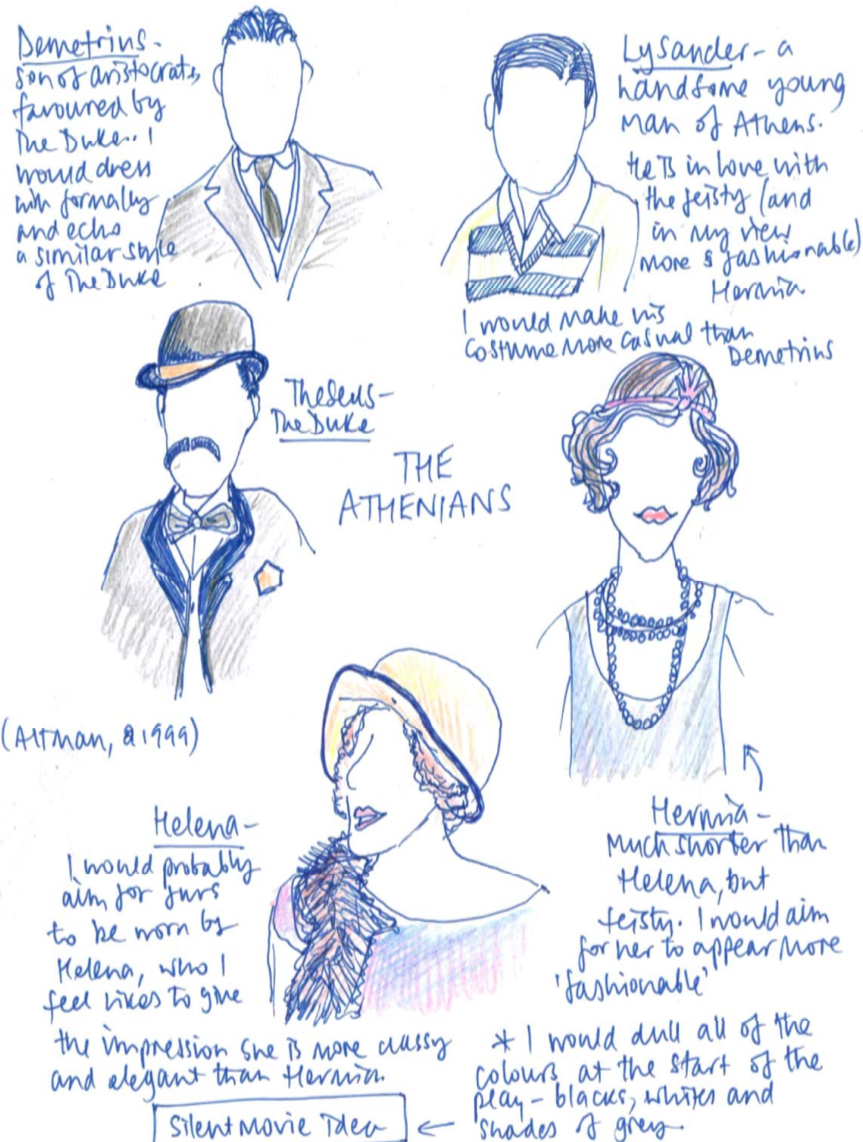 Demetrius -
son of aristocrats,
favoured by
The Duke. I
would dress
him formally
and echo
a similar style
of The Duke
Lysander - a
handsome young
man of Athens.
He is in love with
the feisty (and
in my view
more fashionable)
Hermia
I would make his
costume more casual than
Demetrius
Theseus -
The Duke
THE
ATHENIANS
(Altman, 1999)
Helena -
I would probably
aim for furs
to be worn by
Helena, who I
feel likes to give
the impression she is more classy
and elegant than Hermia.
Hermia -
Much shorter than
Helena, but
feisty. I would aim
for her to appear more
'fashionable'
* I would dull all of the
colours at the start of the
play - blacks, whites and
shades of grey
Silent Movie Idea ←